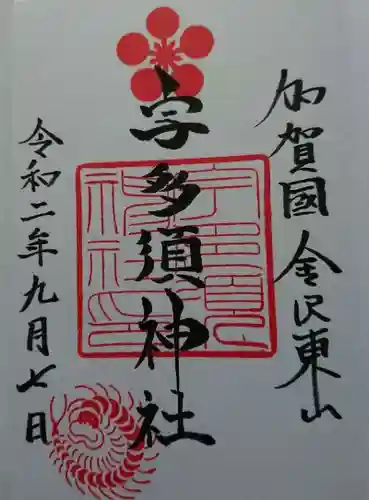 加賀國金沢東山
宇多須神社
令和二年九月七日